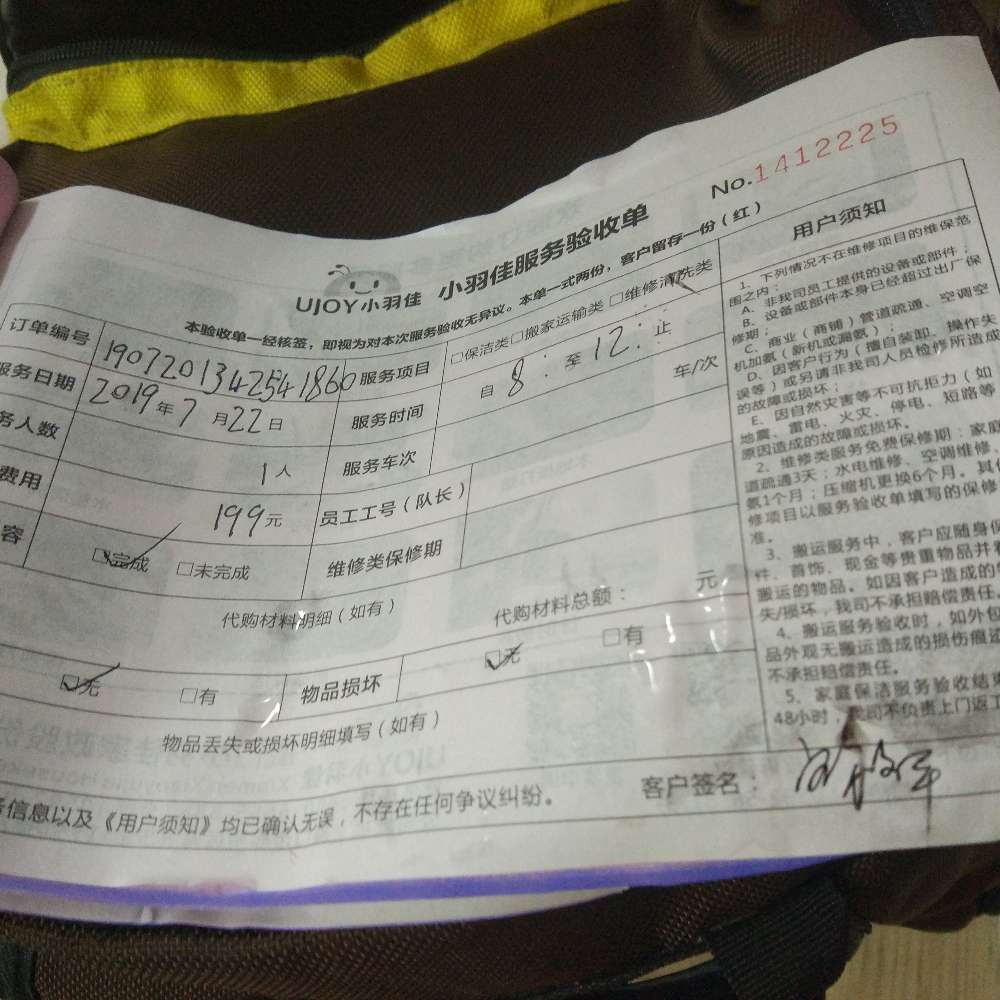 No.1412225
UJOY小羽佳 小羽佳服务验收单
本验收单一经核签，即视为对本次服务验收无异议。本单一式两份，客户留存一份（红）
订单编号 1907201342541860 服务项目 □保洁类□搬家运输类□维修清洗类
服务日期 2019年7月22日 服务时间 自 8： 至 12： 止
务人数 1人 服务车次 车/次
费用 199元 员工工号（队长）
容 □完成 □未完成 维修类保修期
代购材料明细（如有） 代购材料总额： 元
□无 □有 物品损坏 □无 □有
物品丢失或损坏明细填写（如有）
务信息以及《用户须知》均已确认无误，不存在任何争议纠纷。 客户签名：
用户须知
1、下列情况不在维修项目的维保范
围之内：
A、非我司员工提供的设备或部件；
B、设备或部件本身已经超过出厂保
修期；
C、商业（商铺）管道疏通、空调空
机加氨（新机或漏氨）；
D、因客户行为（擅自装卸、操作失
误等）或另请非我司人员检修所造成
的故障或损坏；
E、因自然灾害等不可抗拒力（如
地震、雷电、火灾、停电、短路等
原因造成的故障或损坏。
2、维修类服务免费保修期：家庭
道疏通3天；水电维修、空调维修、
氨1个月；压缩机更换6个月。其他
修项目以服务验收单填写的保修
准。
3、搬运服务中，客户应随身保
件、首饰、现金等贵重物品并看
搬运的物品。如因客户造成的
失/损坏，我司不承担赔偿责任。
4、搬运服务验收时，如外包
品外观无搬运造成的损伤痕迹
不承担赔偿责任。
5、家庭保洁服务验收结束
48小时，我司不负责上门返工